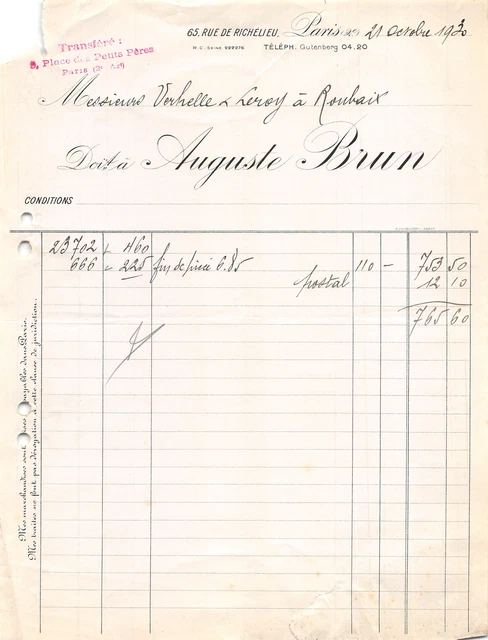 65, RUE DE RICHELIEU, Paris, le 21 Octobre 1930
R.C. Seine 222276 TÉLÉPH. Gutenberg 04.20
Transféré :
8, Place des Petits Pères
Paris (2e Ar.)
Messieurs Verhelle & Leroy à Roubaix
Doit à Auguste Brun
CONDITIONS
23702 460
666 225 fin de pièce 6.85 110 — 753 50
postal 12 10
765 60
Mes marchandises sont payables dans Paris.
Mes traites ne font pas dérogation à cette clause de juridiction.